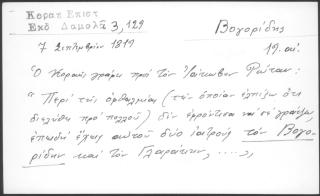 Κοραη Επιστ
Εκδ Δαμαλᾶ 3, 129
Βογορίδης
7 Σεπτεμβρίου 1819
19. αἰ.
Ὁ Κοραῆς γράφει πρὸς τὸν Ἰάκωβον Ρώταν:
"Περὶ τῆς ὀφθαλμίας (τὴν ὁποίαν ἐλπίζω ὅτι
διελύθη πρὸ πολλοῦ) δὲν ἐφρόντισα νὰ σὲ γράψω,
ἐπειδὴ ἔχεις αὐτοῦ δύο ἰατροὺς τὸν Βογο-
ρίδην καὶ τὸν Γλαράκην, ....,,